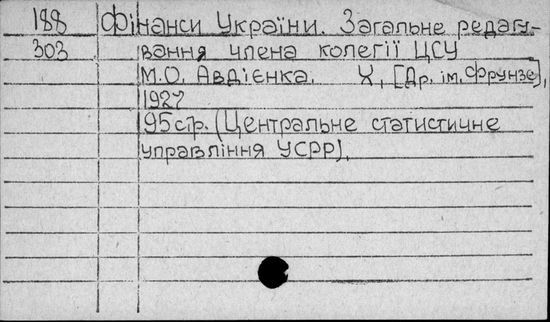 188 Фінанси України. Загальне редагу-
303 вання члена колегії ЦСУ
М.О. Авдієнка. Х, [Др. ім. Фрунзе],
1927
95 стр. (Центральне статистичне
управління УСРР).